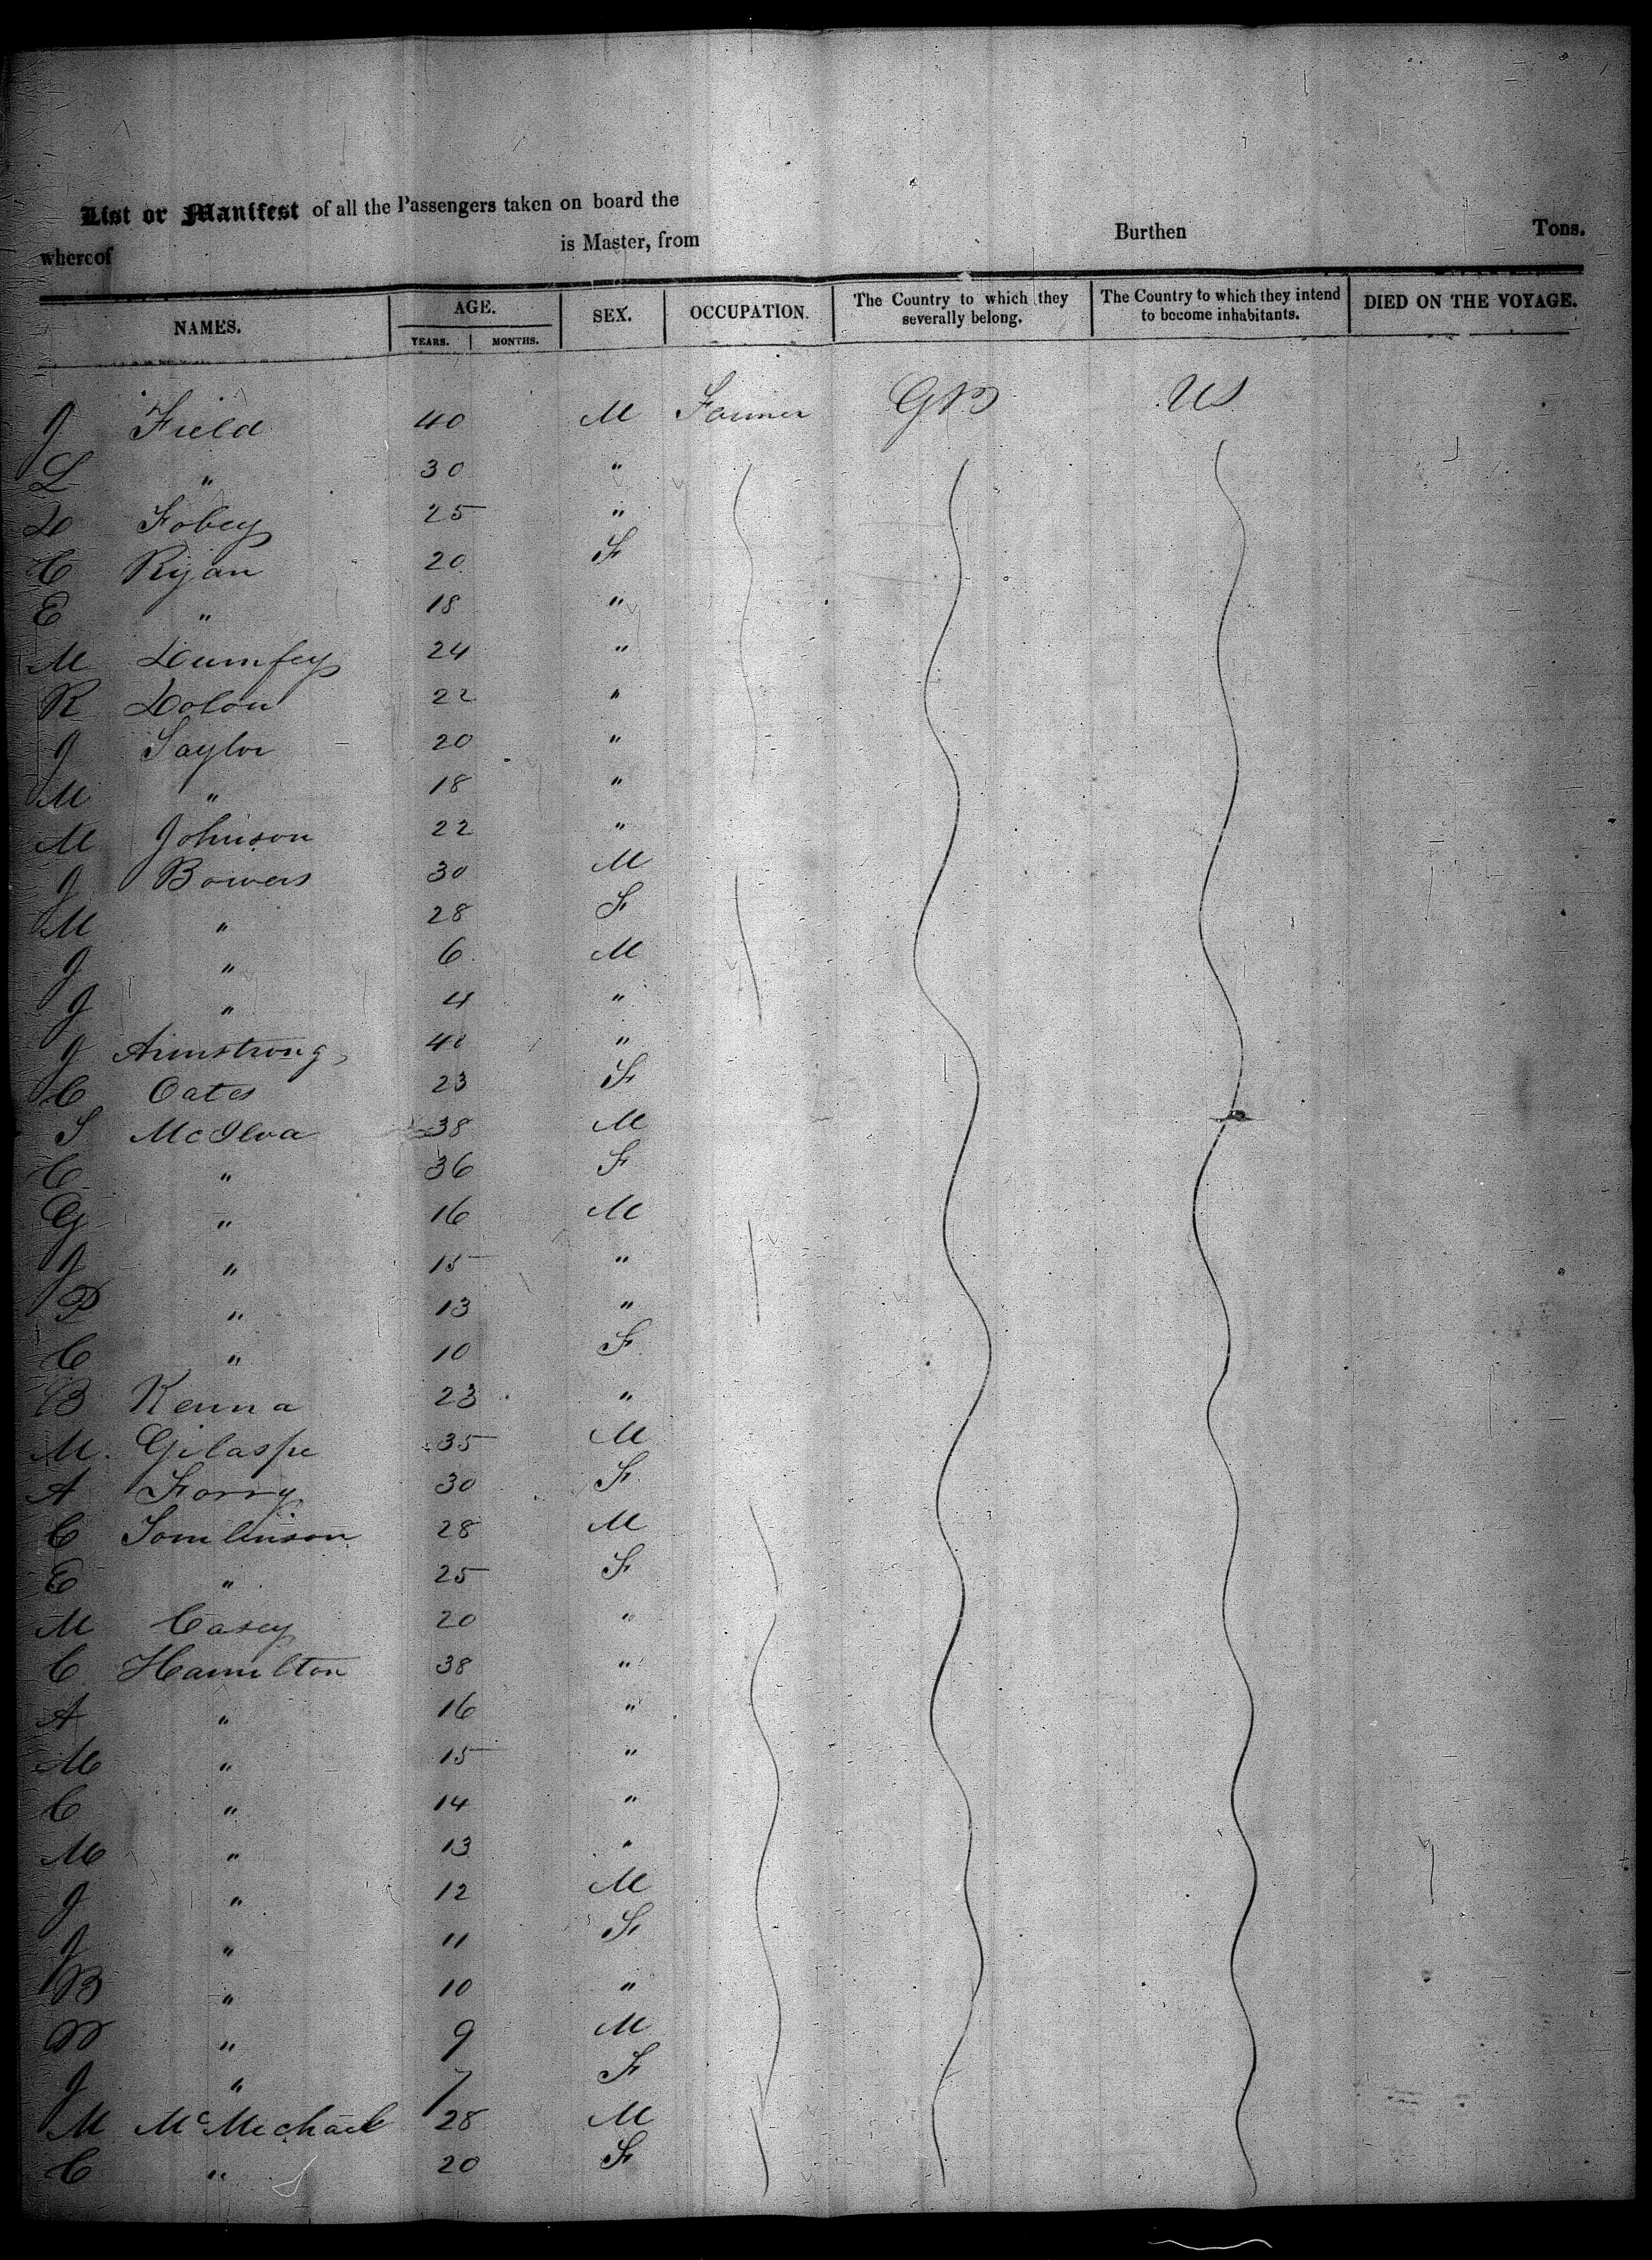 List or Manifest of all the Passengers taken on board the
whereof is Master, from Burthen Tons.
NAMES. AGE. SEX. OCCUPATION. The Country to which they severally belong. The Country to which they intend to become inhabitants. DIED ON THE VOYAGE.
YEARS. MONTHS.
J Field 40 M Farmer GB US
L " 30 "
D Fobey 25 "
C Ryan 20 F
E " 18 "
M Dumfey 24 "
R Dolon 22 "
J Taylor 20 "
M " 18 "
M Johnson 22 "
J Bowers 30 M
M " 28 F
J " 6 M
J " 4 "
J Armstrong 40 "
C Oates 23 F
S McIlva 38 M
C " 36 F
G " 16 M
J " 15 "
P " 13 "
C " 10 F
B Kenna 23 "
M. Gilaspe 35 M
A Forry 30 F
C Tomlinson 28 M
E " 25 F
M Casey 20 "
C Hamilton 38 "
A " 16 "
M " 15 "
C " 14 "
M " 13 "
J " 12 M
J " 11 F
B " 10 "
W " 9 M
J " 7 F
M McMichael 28 M
C " 20 F